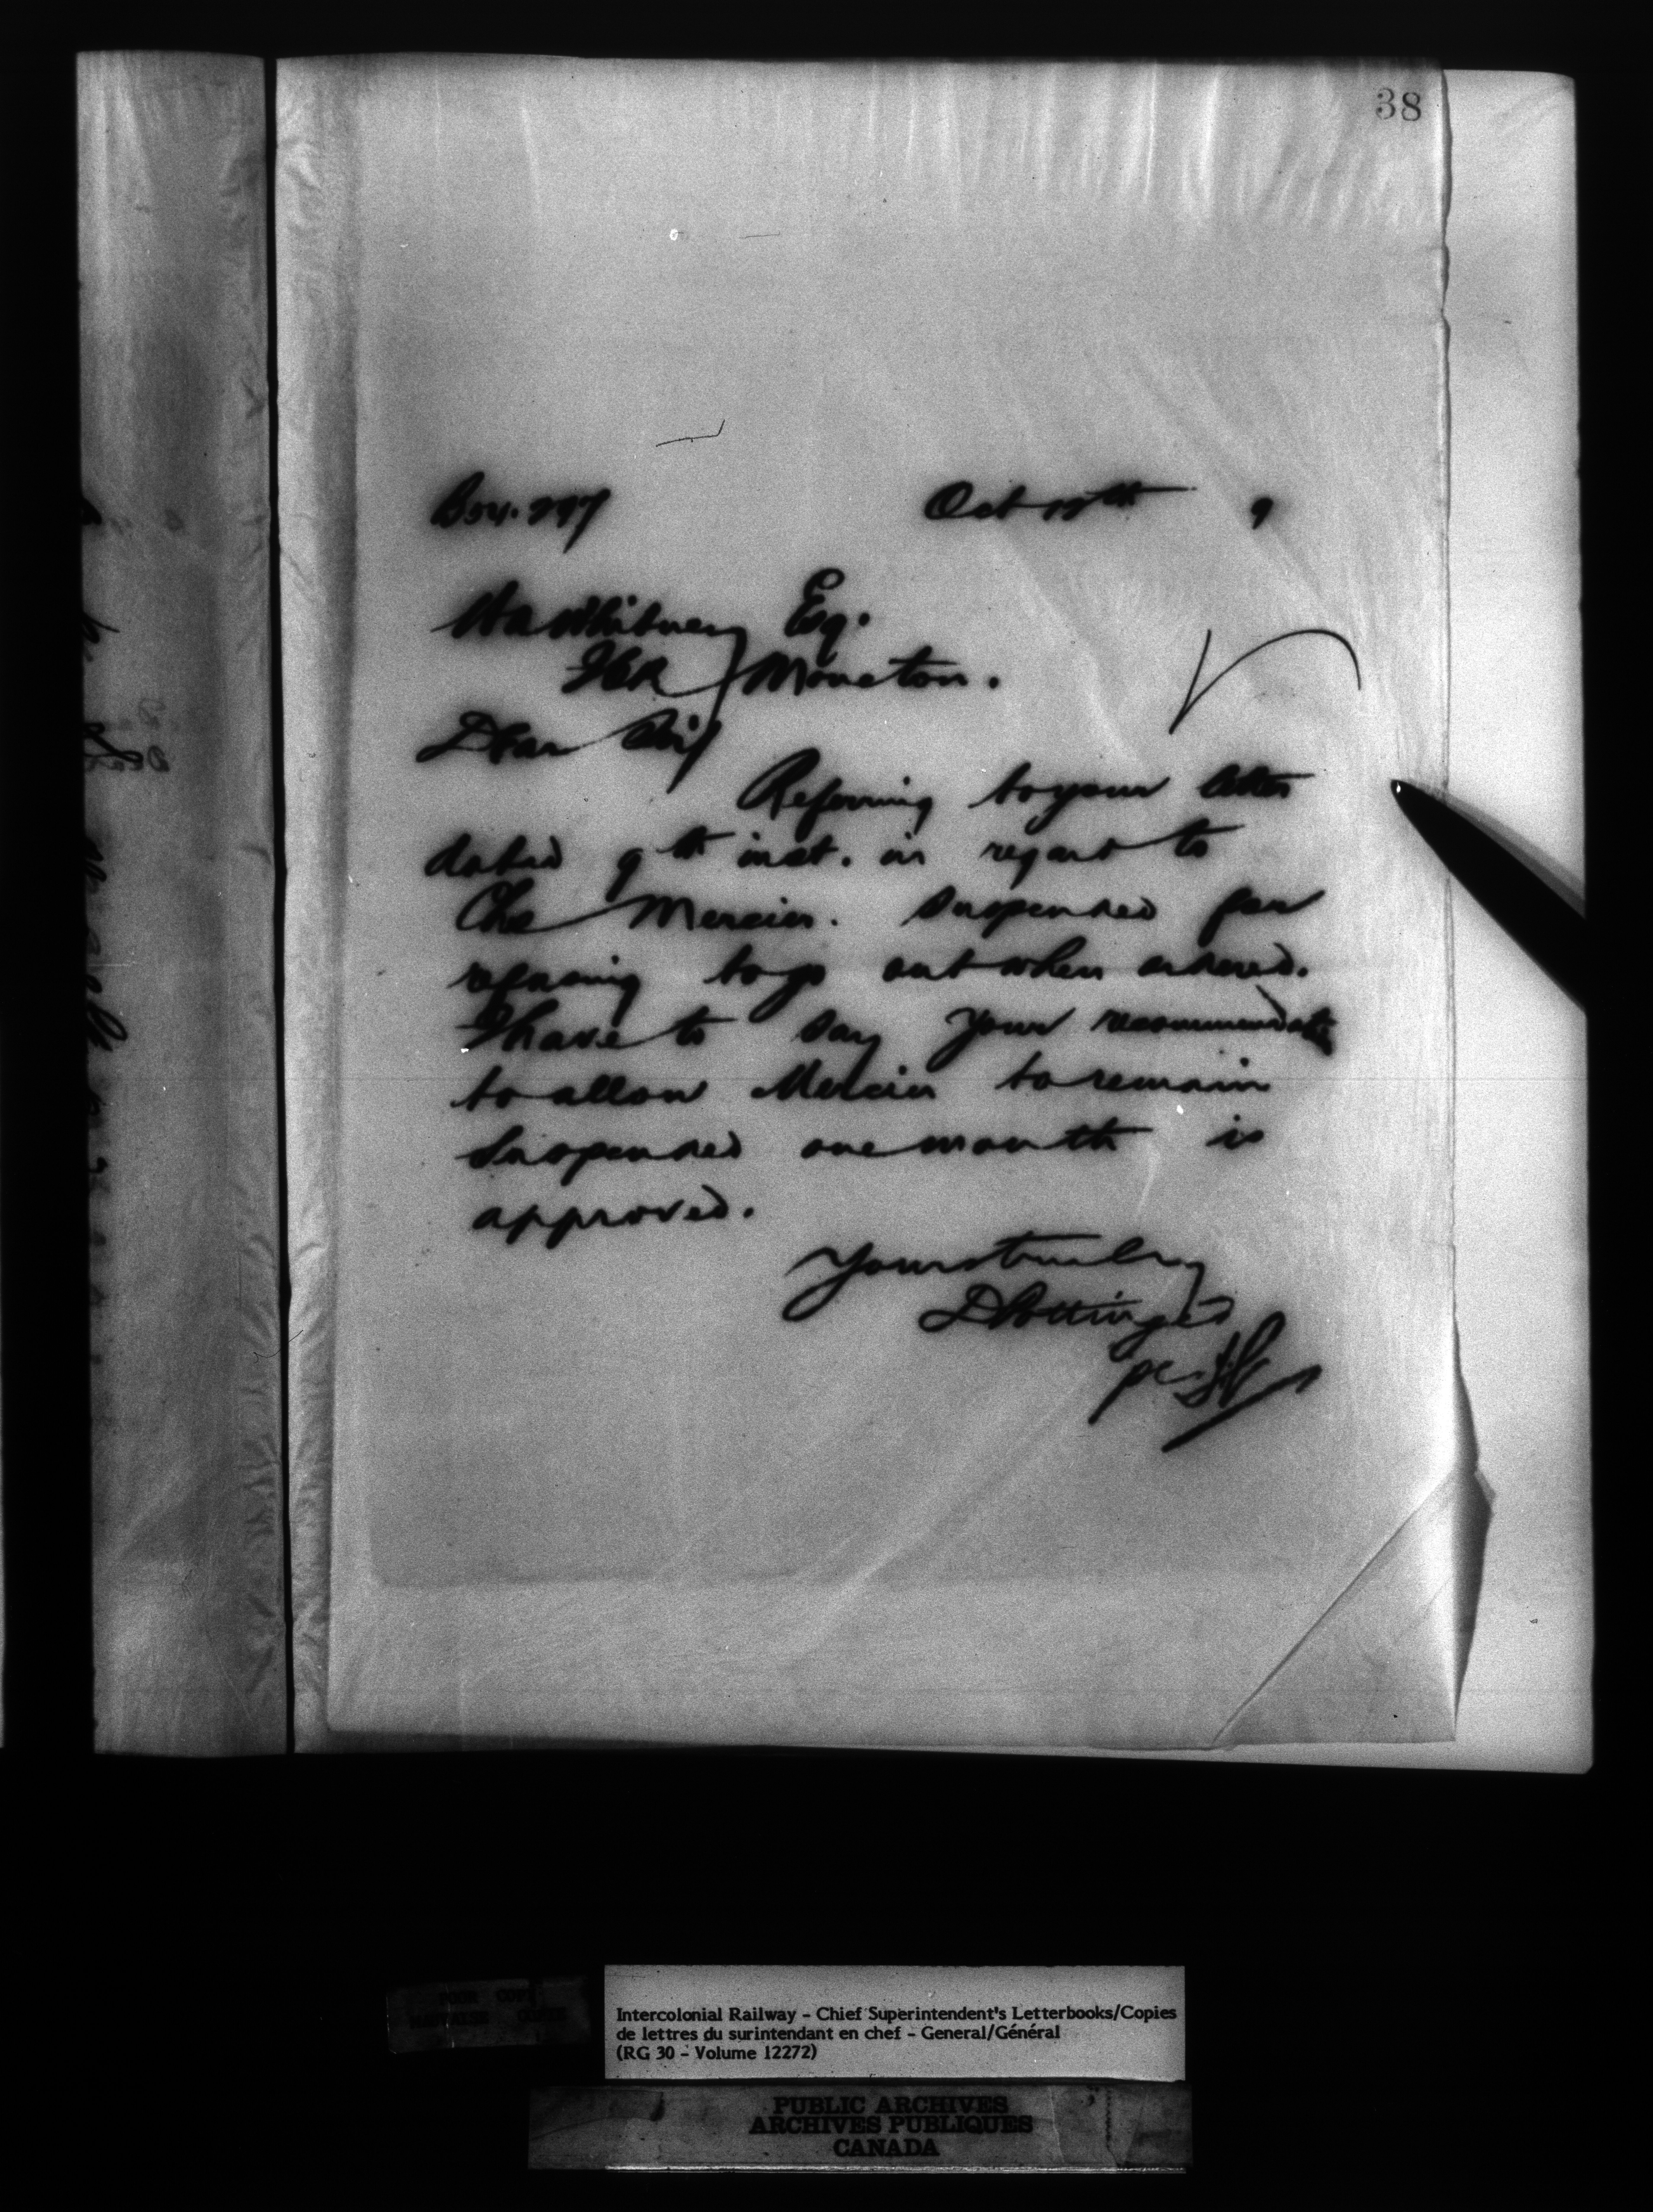 38
Box. 297 Oct 12th 9
HA Whitney Esq.
ICR Moncton.
Dear Sir
Referring to your letter
dated 9th inst. in regard to
Chs Mercier. suspended for
refusing to go out when ordered.
I have to say your recommendatn
to allow Mercier to remain
suspended one month is
approved.
Yours truly
D Pottinger
Intercolonial Railway - Chief Superintendent's Letterbooks/Copies
de lettres du surintendant en chef - General/Général
(RG 30 - Volume 12272)
PUBLIC ARCHIVES
ARCHIVES PUBLIQUES
CANADA